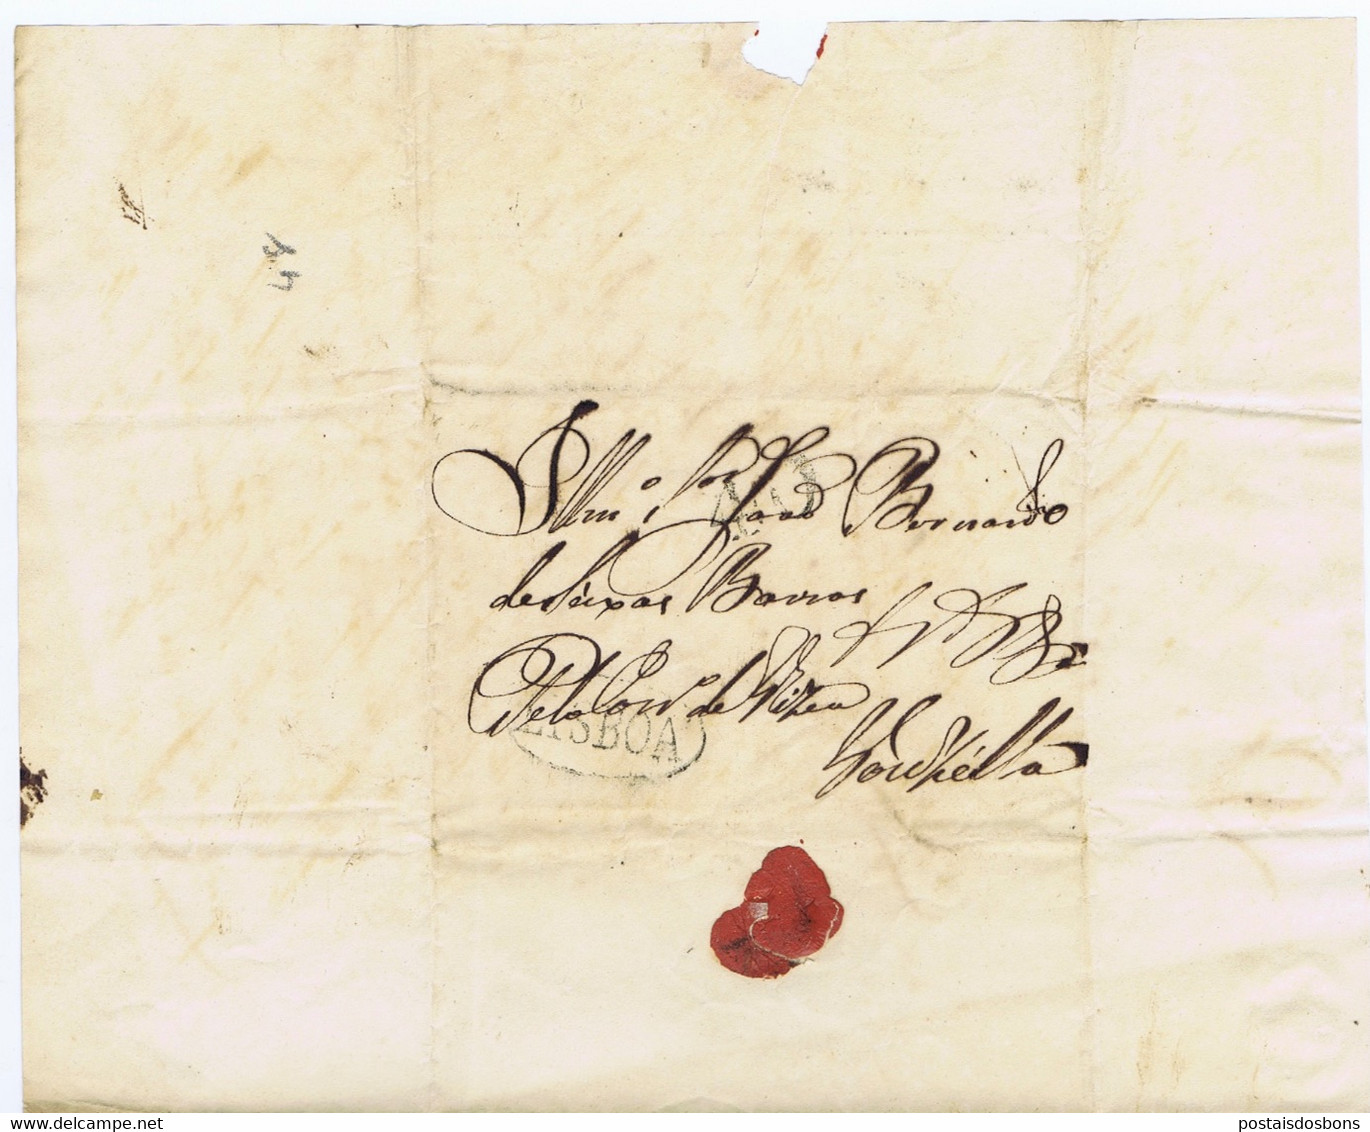 Illmo. Snr João Bernardo
de Seixas Barros
Pelo Corro de Vizeu
LISBOA
www.delcampe.net
postaisdosbons